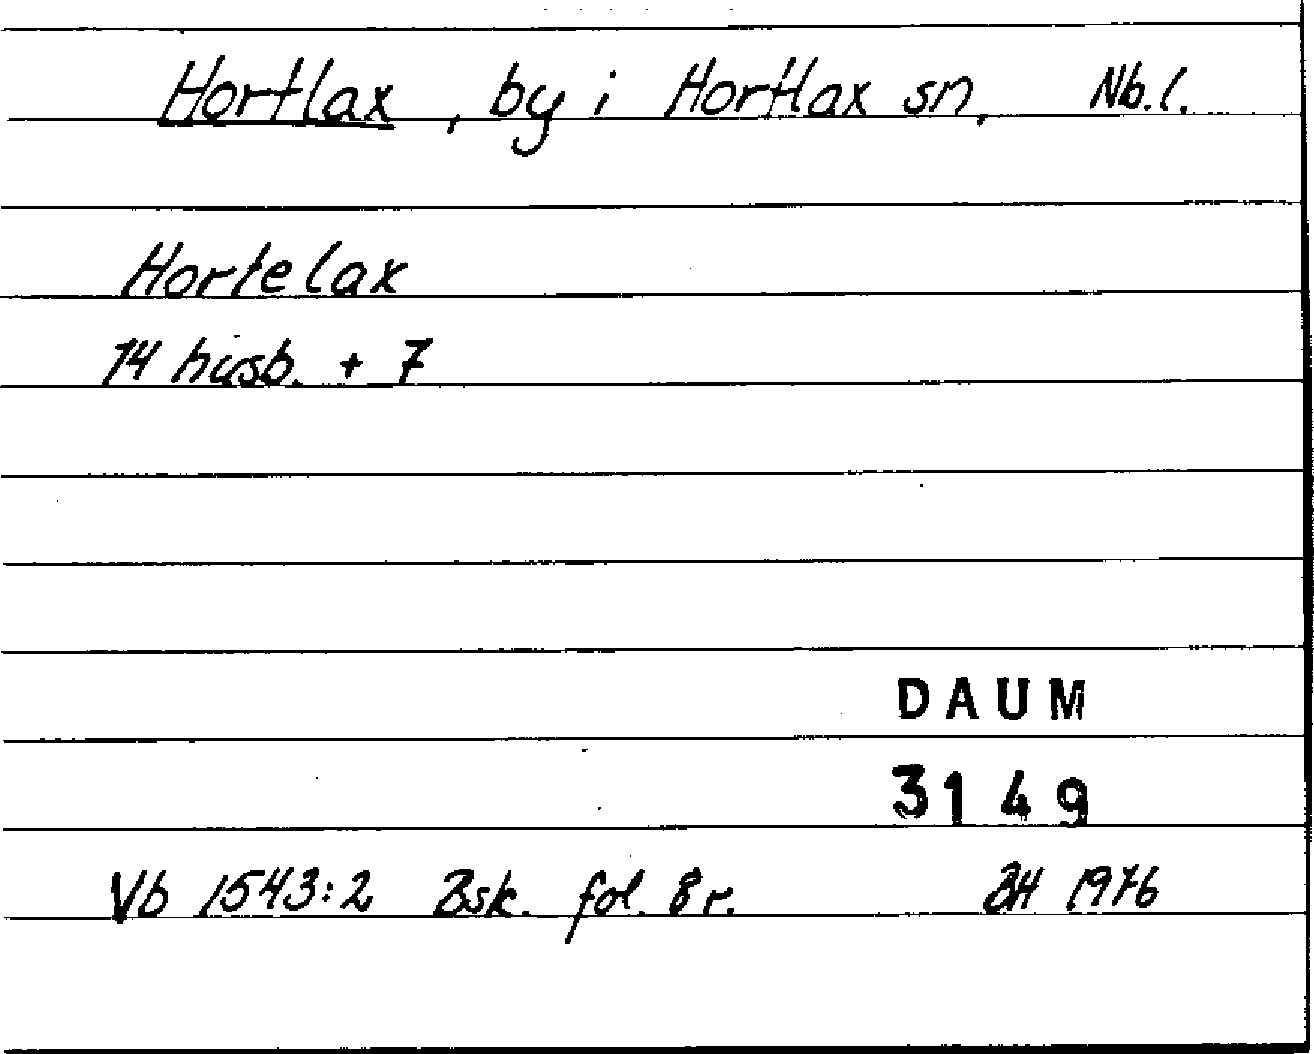 Hortlax, by i Hortlax sn, Nb.l.
Hortelax
14 husb. + 7
DAUM
3149
Vb 1543:2 Bsk. fol. 8r. BH 1976